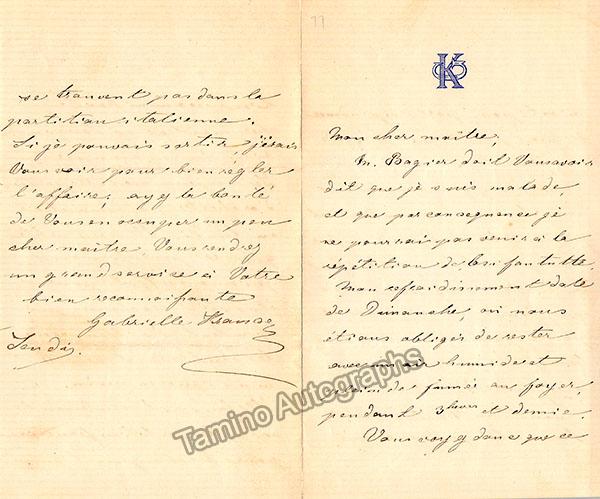 77
K
Mon cher maître,
M. Bagier doit Vous avoir
dit que je suis malade
et que par consequence je
ne pourrai pas venir à la
répétition de Cosi fan tutte.
Mon refroidissement date
de Dimanche, où nous
étions obligés de rester
avec un air humide et
plein de fumée au foyer,
pendant 3 heures et demie.
Vous voyez donc que ce
se trouvent pas dans la
partition italienne.
Si je pouvais sortir, j'irais
Vous voir pour bien régler
l'affaire; ayez la bonté
de Vous en occuper un peu
cher maître, Vous rendrez
un grand service à Votre
bien reconnaissante
Gabrielle Krauss
Jeudi.
Tamino Autographs